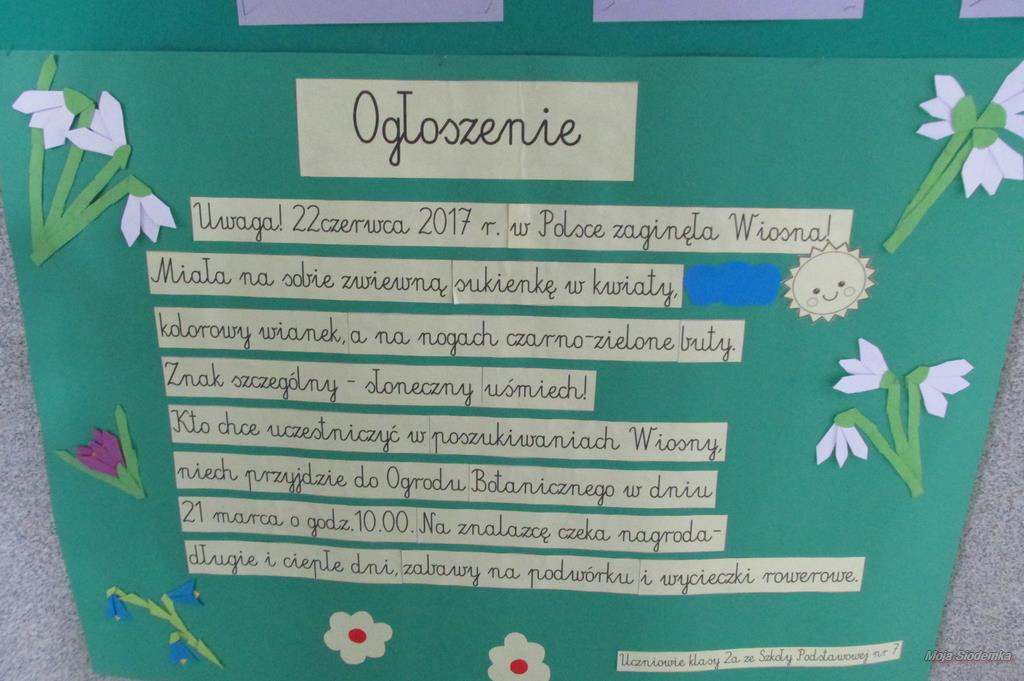 Ogłoszenie
Uwaga! 22czerwca 2017 r. w Polsce zaginęła Wiosna!
Miała na sobie zwiewną sukienkę w kwiaty,
kolorowy wianek, a na nogach czarno-zielone buty.
Znak szczególny - słoneczny uśmiech!
Kto chce uczestniczyć w poszukiwaniach Wiosny,
niech przyjdzie do Ogrodu Botanicznego w dniu
21 marca o godz.10.00. Na znalazcę czeka nagroda-
długie i ciepłe dni, zabawy na podwórku i wycieczki rowerowe.
Uczniowie klasy 2a ze Szkoły Podstawowej nr 7
Moja Siódemka